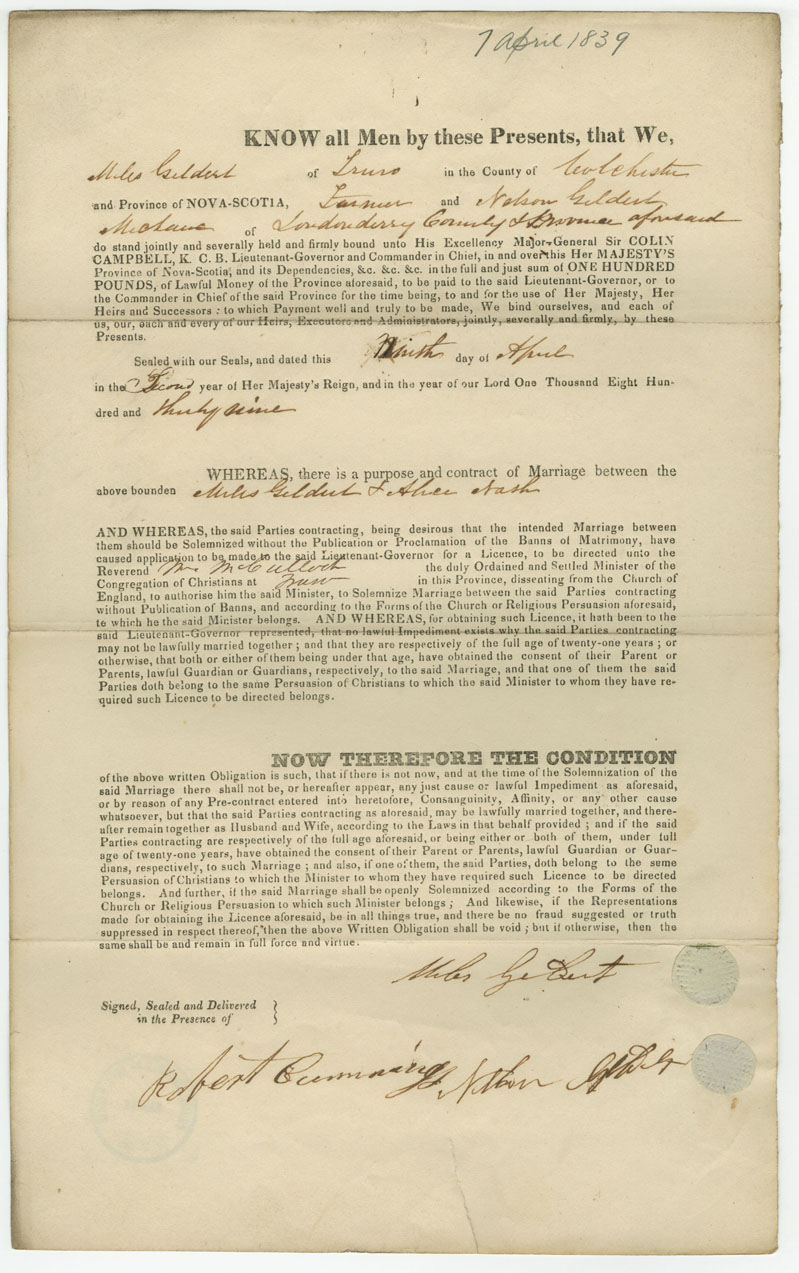 7 April 1839
KNOW all Men by these Presents, that We,
Miles Geldert of Truro in the County of Colchester
and Province of NOVA-SCOTIA, Farmer and Nelson Geldert
of Londonderry County & Province aforesaid
do stand jointly and severally held and firmly bound unto His Excellency Major-General Sir COLIN
CAMPBELL, K. C. B. Lieutenant-Governor and Commander in Chief, in and over this Her MAJESTY'S
Province of Nova-Scotia, and its Dependencies, &c. &c. &c. in the full and just sum of ONE HUNDRED
POUNDS, of Lawful Money of the Province aforesaid, to be paid to the said Lieutenant-Governor, or to
the Commander in Chief of the said Province for the time being, to and for the use of Her Majesty, Her
Heirs and Successors : to which Payment well and truly to be made, We bind ourselves, and each of
us, our, each and every of our Heirs, Executors and Administrators, jointly, severally and firmly, by these
Presents.
Sealed with our Seals, and dated this Ninth day of April
in the Second year of Her Majesty's Reign, and in the year of our Lord One Thousand Eight Hun-
dred and thirty nine
WHEREAS, there is a purpose and contract of Marriage between the
above bounden Miles Geldert & Alice Nash
AND WHEREAS, the said Parties contracting, being desirous that the intended Marriage between
them should be Solemnized without the Publication or Proclamation of the Banns of Matrimony, have
caused application to be made to the said Lieutenant-Governor for a Licence, to be directed unto the
Reverend Mr McCulloch the duly Ordained and Settled Minister of the
Congregation of Christians at Truro in this Province, dissenting from the Church of
England, to authorise him the said Minister, to Solemnize Marriage between the said Parties contracting
without Publication of Banns, and according to the Forms of the Church or Religious Persuasion aforesaid,
to which he the said Minister belongs. AND WHEREAS, for obtaining such Licence, it hath been to the
said Lieutenant-Governor represented, that no lawful Impediment exists why the said Parties contracting
may not be lawfully married together ; and that they are respectively of the full age of twenty-one years ; or
otherwise, that both or either of them being under that age, have obtained the consent of their Parent or
Parents, lawful Guardian or Guardians, respectively, to the said Marriage, and that one of them the said
Parties doth belong to the same Persuasion of Christians to which the said Minister to whom they have re-
quired such Licence to be directed belongs.
NOW THEREFORE THE CONDITION
of the above written Obligation is such, that if there is not now, and at the time of the Solemnization of the
said Marriage there shall not be, or hereafter appear, any just cause or lawful Impediment as aforesaid,
or by reason of any Pre-contract entered into heretofore, Consanguinity, Affinity, or any other cause
whatsoever, but that the said Parties contracting as aforesaid, may be lawfully married together, and there-
after remain together as Husband and Wife, according to the Laws in that behalf provided ; and if the said
Parties contracting are respectively of the full age aforesaid, or being either or both of them, under full
age of twenty-one years, have obtained the consent of their Parent or Parents, lawful Guardian or Guar-
dians, respectively, to such Marriage ; and also, if one of them, the said Parties, doth belong to the same
Persuasion of Christians to which the Minister to whom they have required such Licence to be directed
belongs. And further, if the said Marriage shall be openly Solemnized according to the Forms of the
Church or Religious Persuasion to which such Minister belongs ; And likewise, if the Representations
made for obtaining the Licence aforesaid, be in all things true, and there be no fraud suggested or truth
suppressed in respect thereof, then the above Written Obligation shall be void ; but if otherwise, then the
same shall be and remain in full force and virtue.
Miles Geldert
Signed, Sealed and Delivered
in the Presence of
Robert Cummings Nelson Geldert